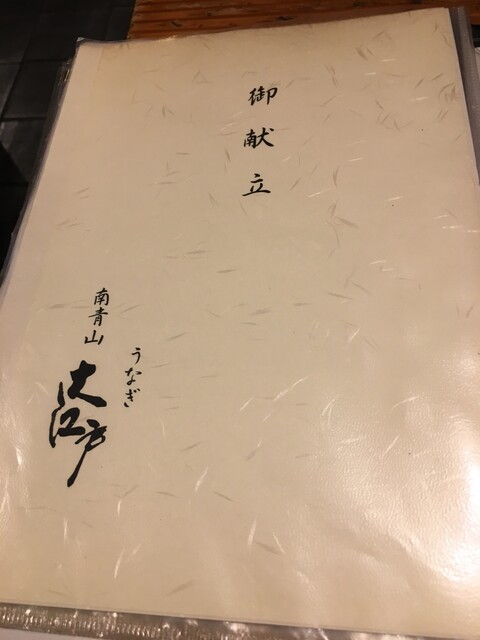 御献立
うなぎ
南青山
大江戸